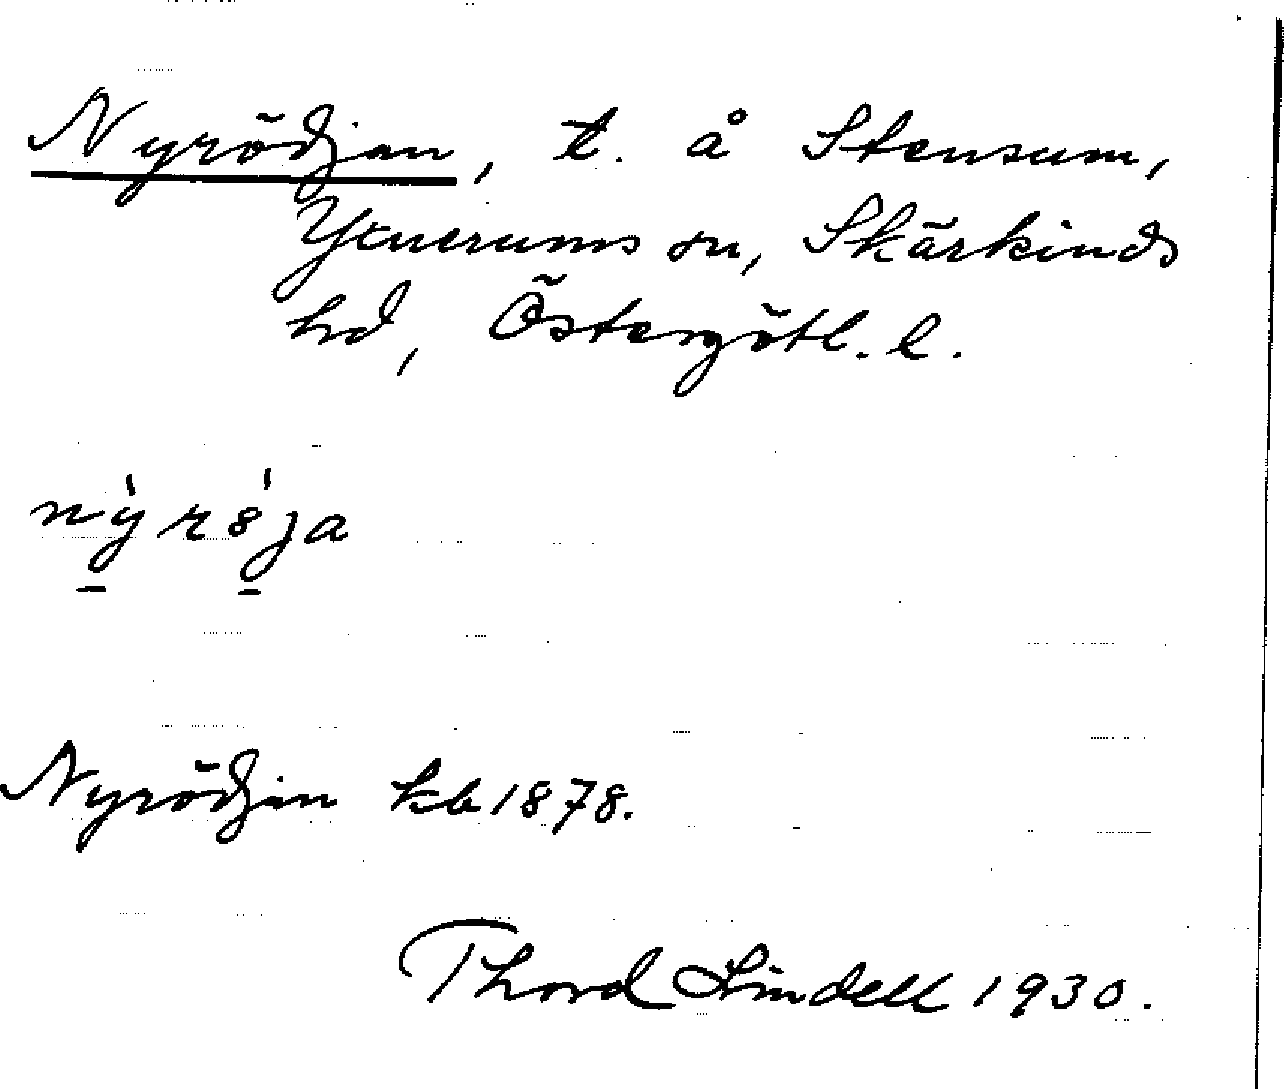 Nyrödjan, t. å Stensum,
Yxnerums sn, Skärkinds
hd, Östergötl. l.
Nyrödjan kb 1878.
Thord Lindell 1930.